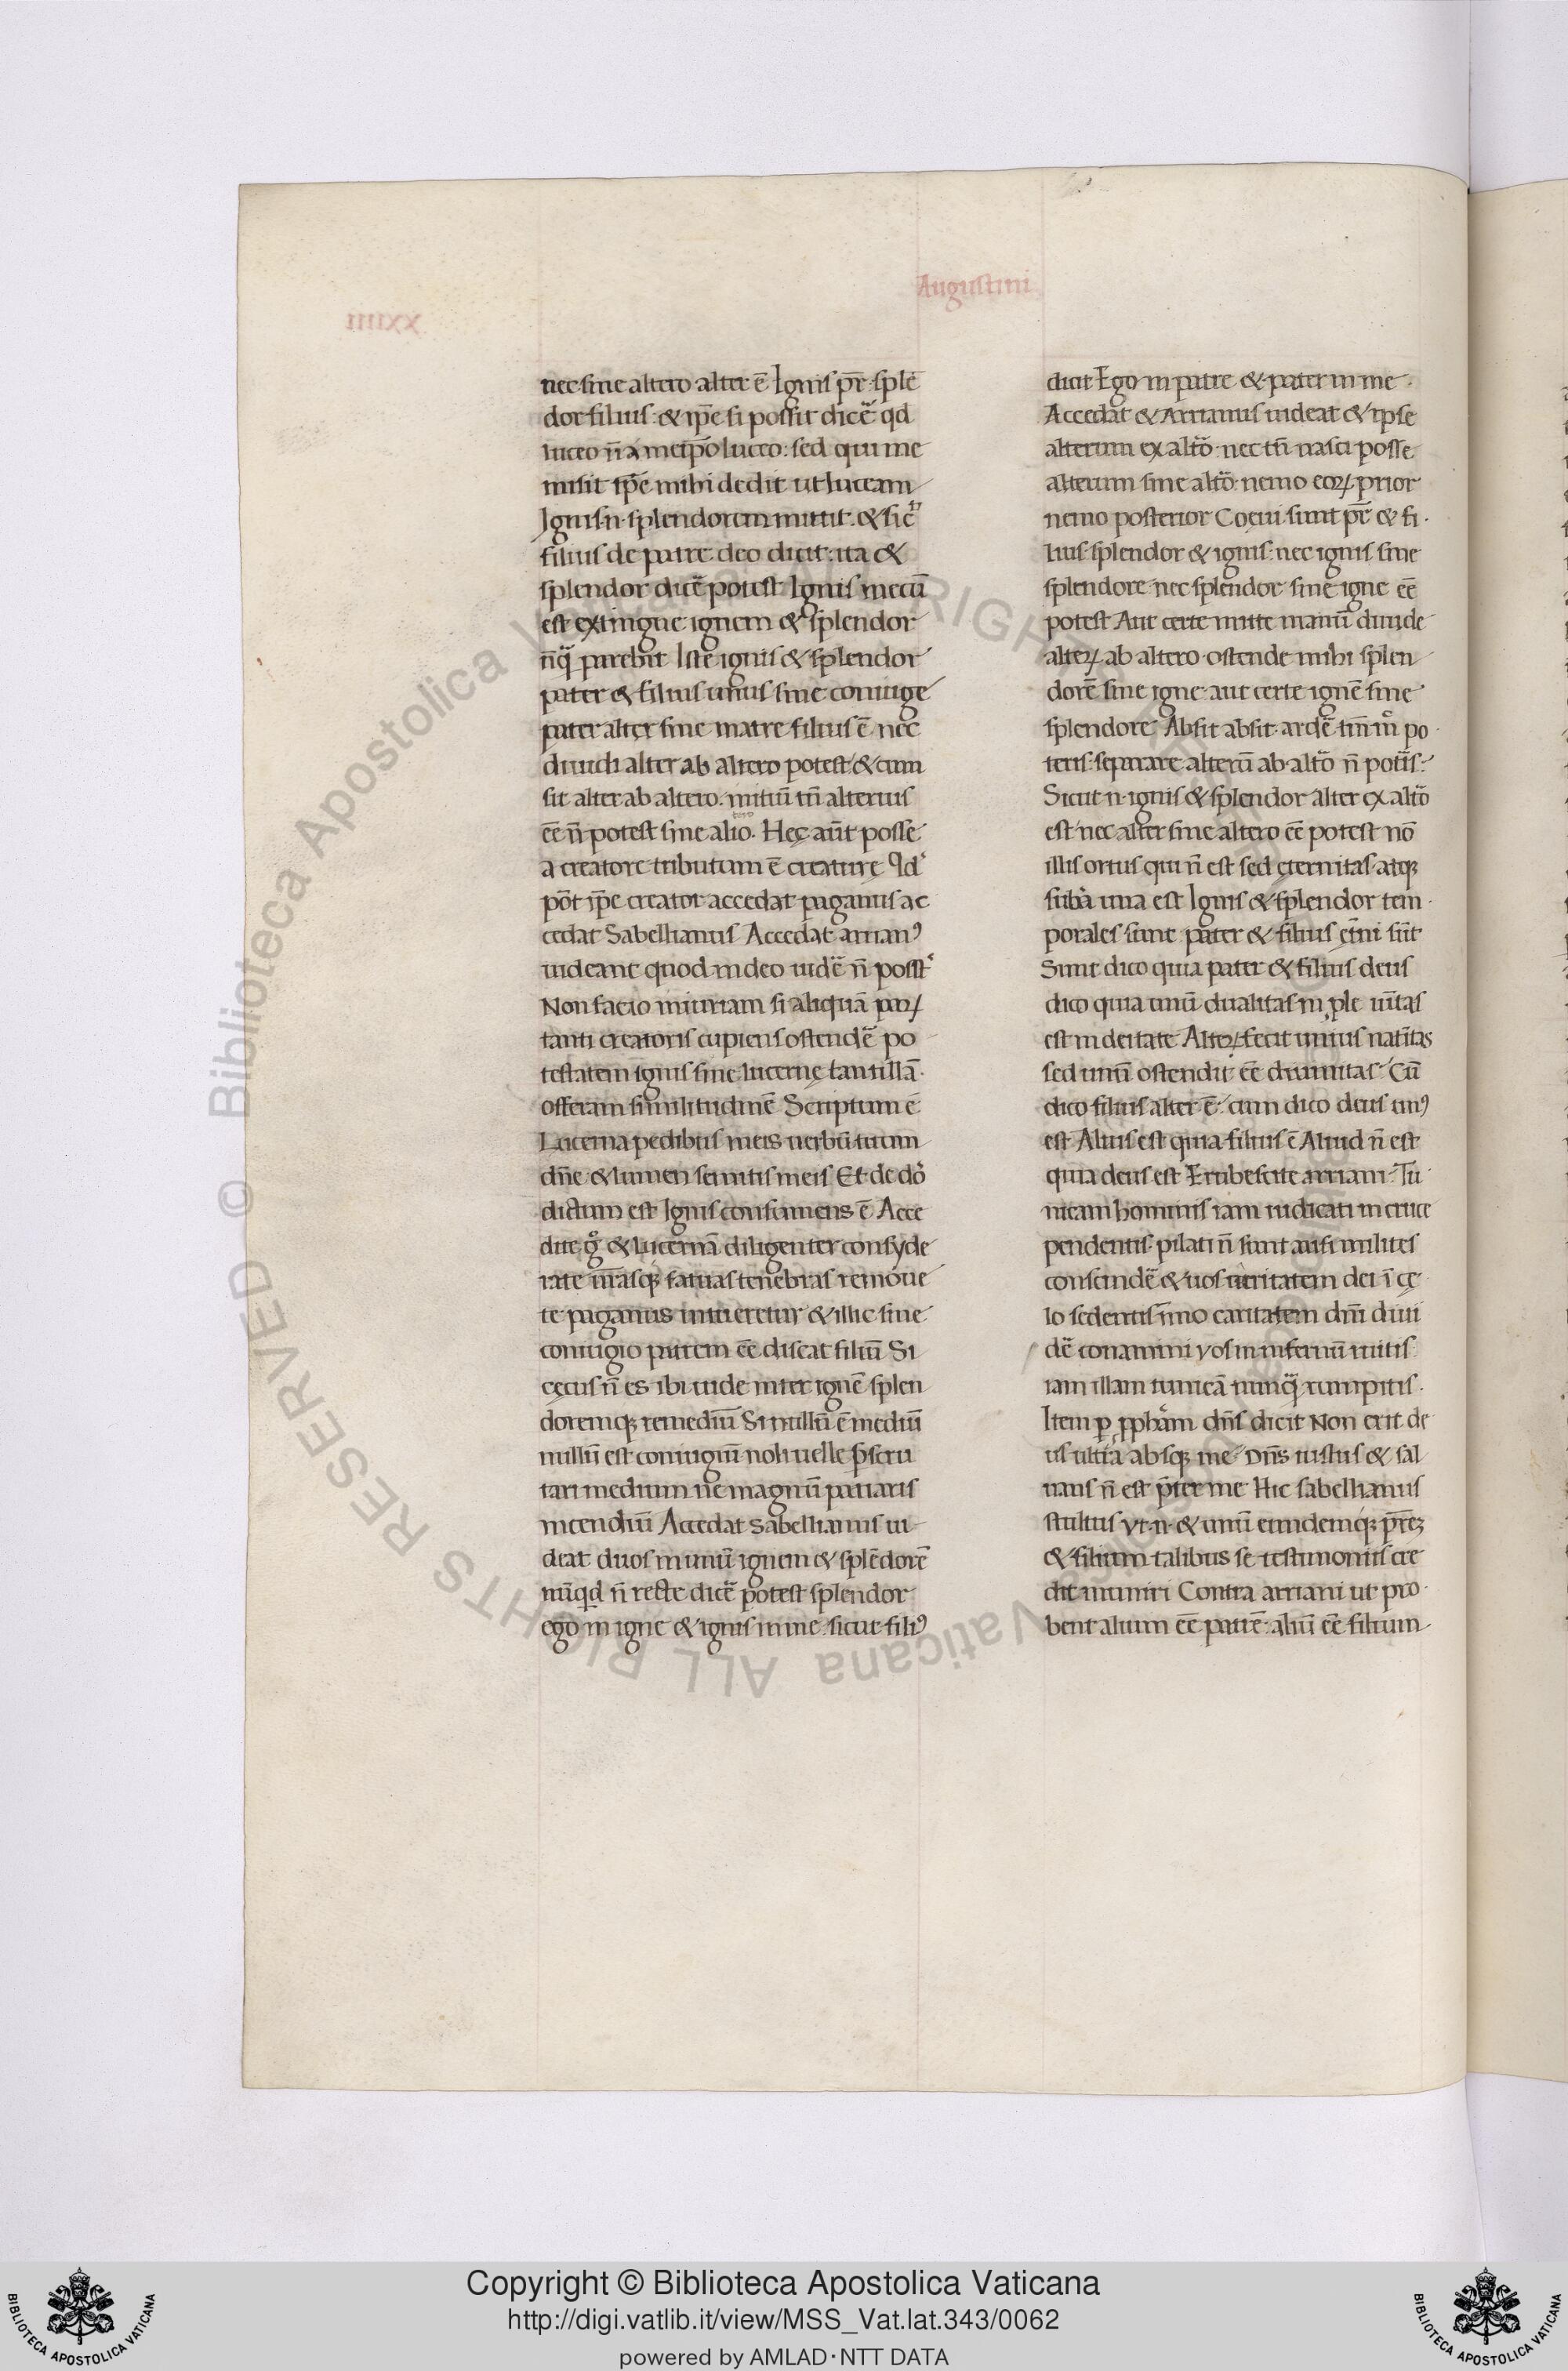 Augustini
xxiiii
nec sine altero alter ē Ignis pr̄ splē
dor filius & ip̄e si possit dicē qd
luceo n̄ a meip̄o luceo: sed qui me
misit ip̄e mihi dedit ut luceam
Ignis n. splendorem mittit. & sic
filius de patre deo dicit: ita &
splendor dicē potest Ignis mecū
est extingue ignem & splendor
nq̄ parebit Iste ignis & splendor
pater & filius unus sine coniuge
pater alter sine matre filius ē nec
diuidi alter ab altero potest & cum
sit alter ab altero. initiū tn̄ alterius
eē n̄ potest sine alio. Hęc aut̄ posse
a creatore tributum ē creaturę Id
pōt ip̄e creator accedat paganus ac
cedat Sabellianus Accedat arrianꝰ
uideant quod in deo uidē n̄ posst̄
Non facio iniuriam si aliquā parꝝ
tanti creatoris cupiens ostendē po
testatem ignis siue lucernę tantillā
offeram similitudinē Scriptum ē
Lucerna pedibus meis uerbū tuum
dn̄e & lumen semitis meis Et de dō
dictum est Ignis consumens ē Acce
dite g̊ & lucernā diligenter consyde
rate ur̄asqꝫ fatuas tenebras remoue
te paganus intueretur & illic sine
coniugio patrem eē discat filiū Si
cęcus n̄ es ibi uide inter ignē splen
doremqꝫ remediū Si nullū ē mediū
nullū est coniugiū noli uelle p̄scru
tari medium ne magnū patiaris
incendiū Accedat sabellianus ui
deat duos in unū ignem & splēdorē
nūqd n̄ recte dicē potest splendor
ego in igne & ignis in me sicut filiꝰ
dicit Ego in patre & pater in me.
Accedat & Arrianus uideat & ipse
alterum ex altō nec tn̄ nasci posse
alterum sine altō: nemo eoꝝ prior
nemo posterior Coeui sunt pr̄ & fi.
lius splendor & ignis: nec ignis sine
splendore nec splendor sine igne eē
potest Aut certe mitte manū diuide
alteꝝ ab altero ostende mihi splen
dorē sine igne aut certe ignē sine
splendore Absit absit ardē tm̄ m̊ po
teris: separare alterū ab altō n̄ potis
Sicut n. ignis & splendor alter ex altō
est nec alter sine altero eē potest nō
illis ortus qui n̄ est sed ęternitas atqꝫ
subā una est Ignis & splendor tem
porales sunt pater & filius ęt̄ni sūt
Sunt dico quia pater & filius deus
dico quia unū dualitas in ple un̄itas
est in deitate Alteꝝ fecit unius nat̄itas
sed unū ostendit eē diuinitas Cū
dico filius alter ē: cum dico deus unꝰ
est Alius est quia filius ē Aliud n̄ est
quia deus est Erubescite arriani Tu
nicam hominis iam iudicati in cruce
pendentis pilati n̄ sunt ausi milites
conscindē & uos ueritatem dei ī cę
lo sedentis īmo caritatem dn̄i diui
dē conamini vos in infernū ruitis
iam illam tunicā nunq̄ rumpitis.
Item ꝑ pphām dn̄s dicit Non erit de
us ultra absqꝫ me Dn̄s iustus & sal
uans n̄ est p̄ter me Hic sabellianus
stultus vt. n. & unū eundemqꝫ pr̄eꝫ
& filium talibus se testimoniis cre
dit muniri Contra arriani ut pro
bent alium eē patrē: aliū eē filium
Copyright © Biblioteca Apostolica Vaticana
http://digi.vatlib.it/view/MSS_Vat.lat.343/0062
powered by AMLAD·NTT DATA
© Biblioteca Apostolica Vaticana ALL RIGHTS RESERVED
BIBLIOTECA APOSTOLICA VATICANA
BIBLIOTECA APOSTOLICA VATICANA